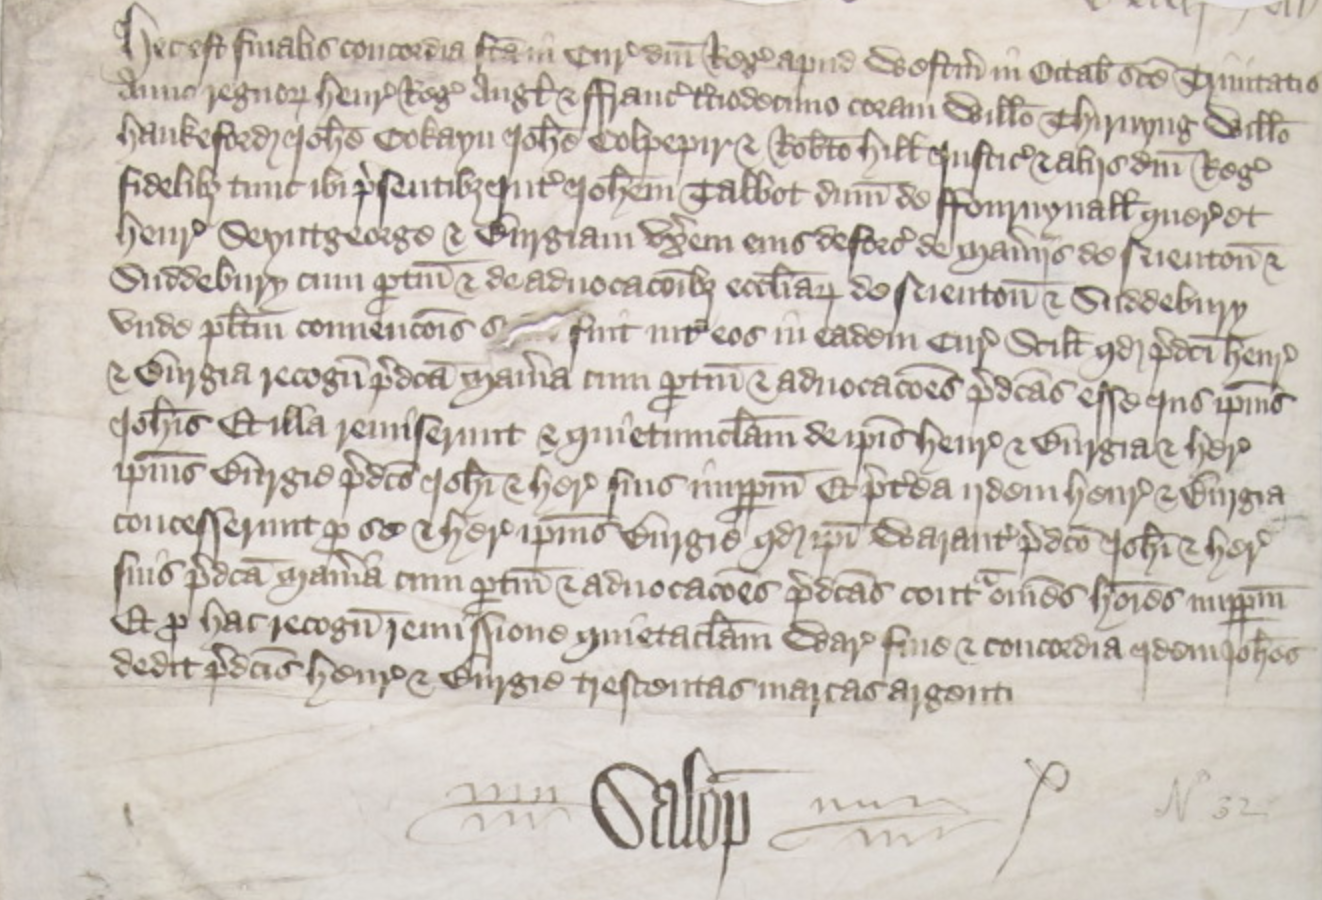 Hec est finalis concordia fca in Cur dni Reg apud Westm in Octab sce Trinitatis
Anno regnor Henr Reg Angl & Ffranc tciodecimo coram Willo Thirnyng Willo
Hankeford Johe Cokayn Johe Colpepir & Robto Hill Justic & alijs dni Reg
fidelibz tunc ibi psentibz Int Johem Talbot dnm de Ffournyvall quer et
Henr Seyntgeorge & ux̄em eius deforc de Manijs de &
Suddebury cum ptin & de advocacoibz eccliar de & Suddebury
Unde plitm convencois fuit int eos in eadem Cur Scilt qd pdci Henr
& recogn pdca Mania cum ptin & advocacoes pdcas esse Jus ipius
Johis Et illa remiserunt & quietumclam de ipis Henr & & her
ipius pdco Johi & her suis imppm Et ptea ijdem Henr &
concesserunt p se & her ipius qd ipi Warant pdco Johi & her
suis pdca Mania cum ptin & advocacoes pdcas cont omes hoies imppm
Et p hac recogn remissione quietaclam War fine & concordia idem Johes
dedit pdcis Henr & trescentas marcas argenti
Salop
No 32